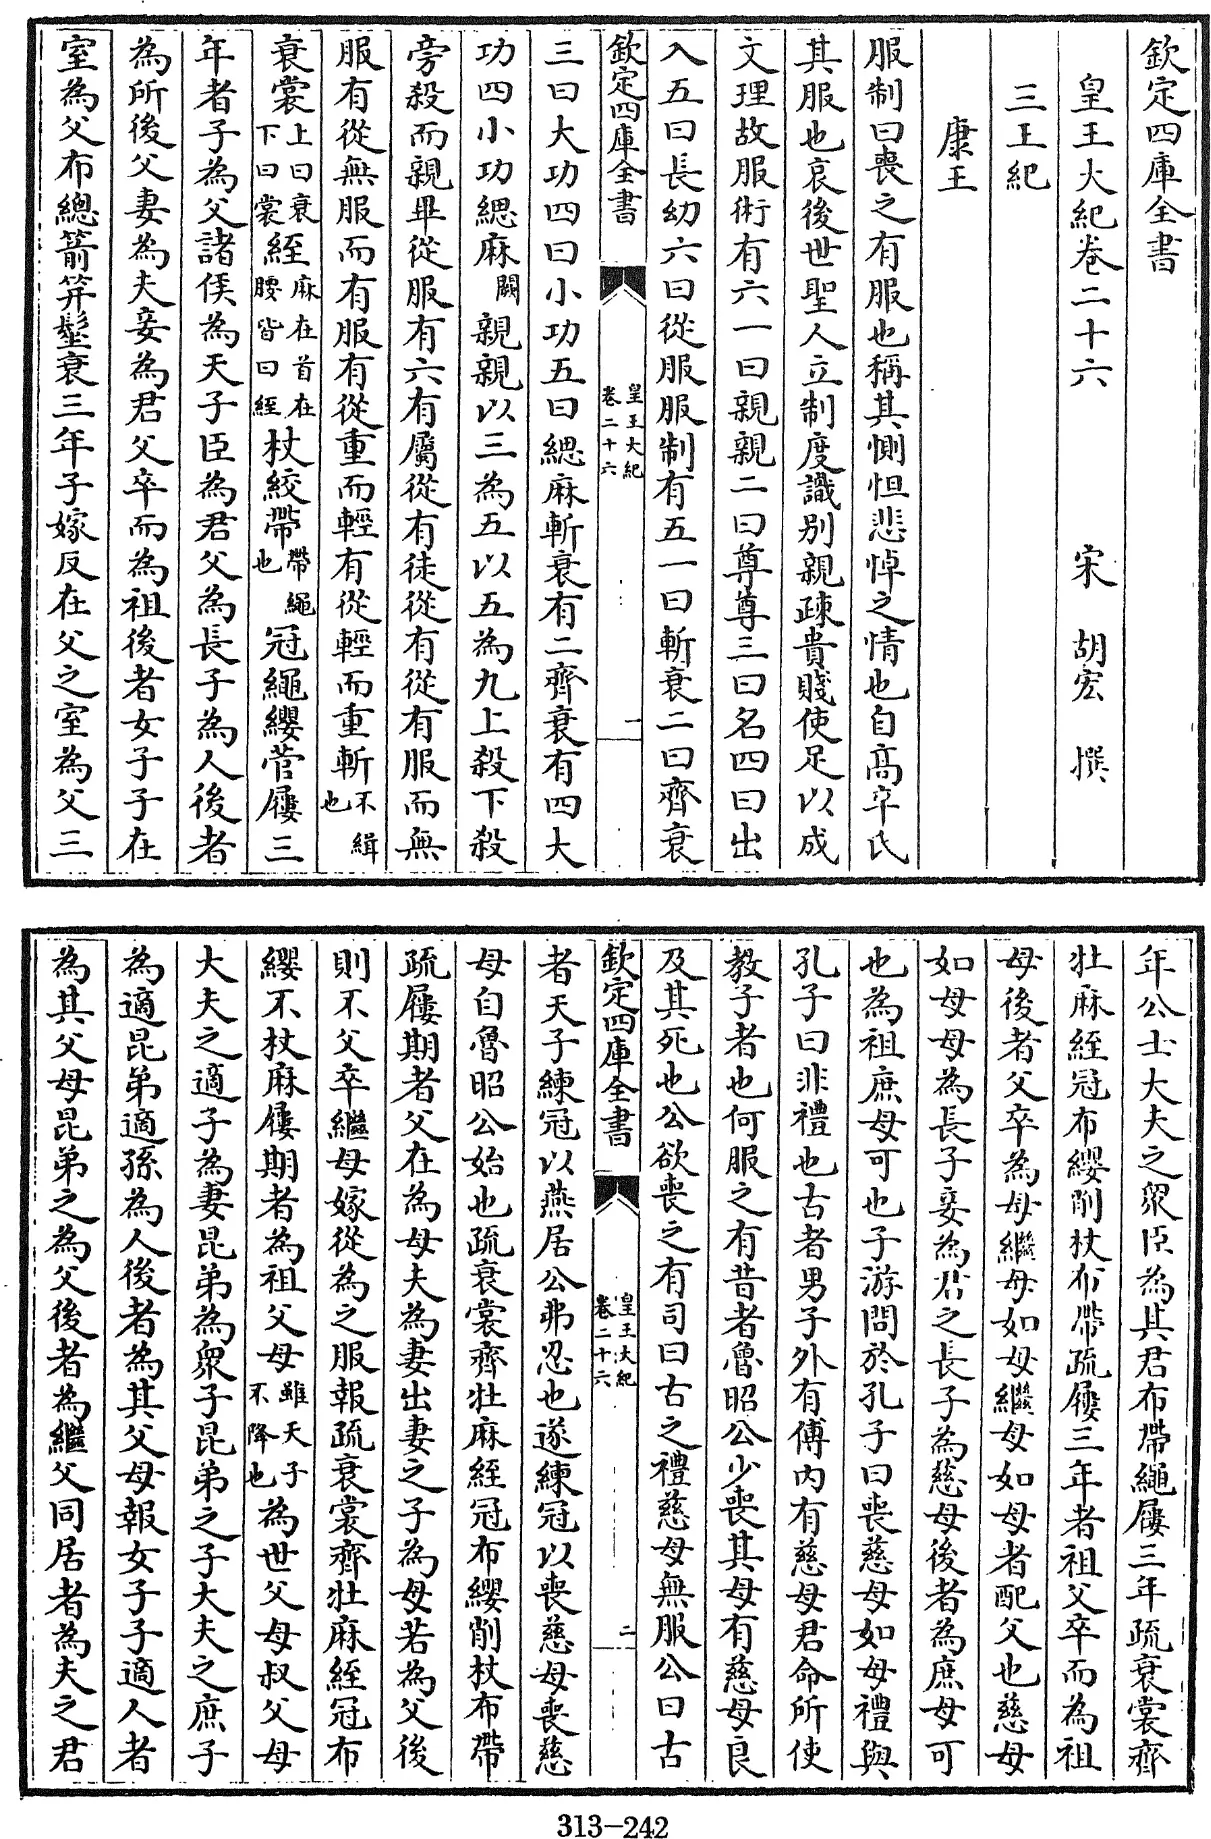 欽定四庫全書
皇王大紀卷二十六
宋 胡宏 撰
三王紀
康王
服制曰喪之有服也稱其惻怛悲悼之情也自高辛氏
其服也哀後世聖人立制度識別親疎貴賤使足以成
文理故服術有六一曰親親二曰尊尊三曰名四曰出
入五曰長幼六曰從服服制有五一曰斬衰二曰齊衰
欽定四庫全書
皇王大紀
卷二十六
一
三曰大功四曰小功五曰緦麻斬衰有二齊衰有四大
功四小功緦麻闕親親以三為五以五為九上殺下殺
旁殺而親畢從服有六有屬從有徒從有從有服而無
服有從無服而有服有從重而輕有從輕而重斬不緝也
衰裳上曰衰下曰裳絰麻在首在腰皆曰絰杖絞帶帶繩也冠繩纓菅屨三
年者子為父諸侯為天子臣為君父為長子為人後者
為所後父妻為夫妾為君父卒而為祖後者女子子在
室為父布總箭笄髽衰三年子嫁反在父之室為父三
年公士大夫之衆臣為其君布帶繩屨三年疏衰裳齊
牡麻絰冠布纓削杖布帶疏屨三年者祖父卒而為祖
母後者父卒為母繼母如母繼母如母者配父也慈母
如母母為長子妾為君之長子為慈母後者為庶母可
也為祖庶母可也子游問於孔子曰喪慈母如母禮與
孔子曰非禮也古者男子外有傅内有慈母君命所使
教子者也何服之有昔者魯昭公少喪其母有慈母良
及其死也公欲喪之有司曰古之禮慈母無服公曰古
欽定四庫全書
皇王大紀
卷二十六
二
者天子練冠以燕居公弗忍也遂練冠以喪慈母喪慈
母自魯昭公始也疏衰裳齊牡麻絰冠布纓削杖布帶
疏屨期者父在為母夫為妻出妻之子為母若為父後
則不父卒繼母嫁從為之服報疏衰裳齊牡麻絰冠布
纓不杖麻屨期者為祖父母雖天子不降也為世父母叔父母
大夫之適子為妻昆弟為衆子昆弟之子大夫之庶子
為適昆弟適孫為人後者為其父母報女子子適人者
為其父母昆弟之為父後者為繼父同居者為夫之君
313-242